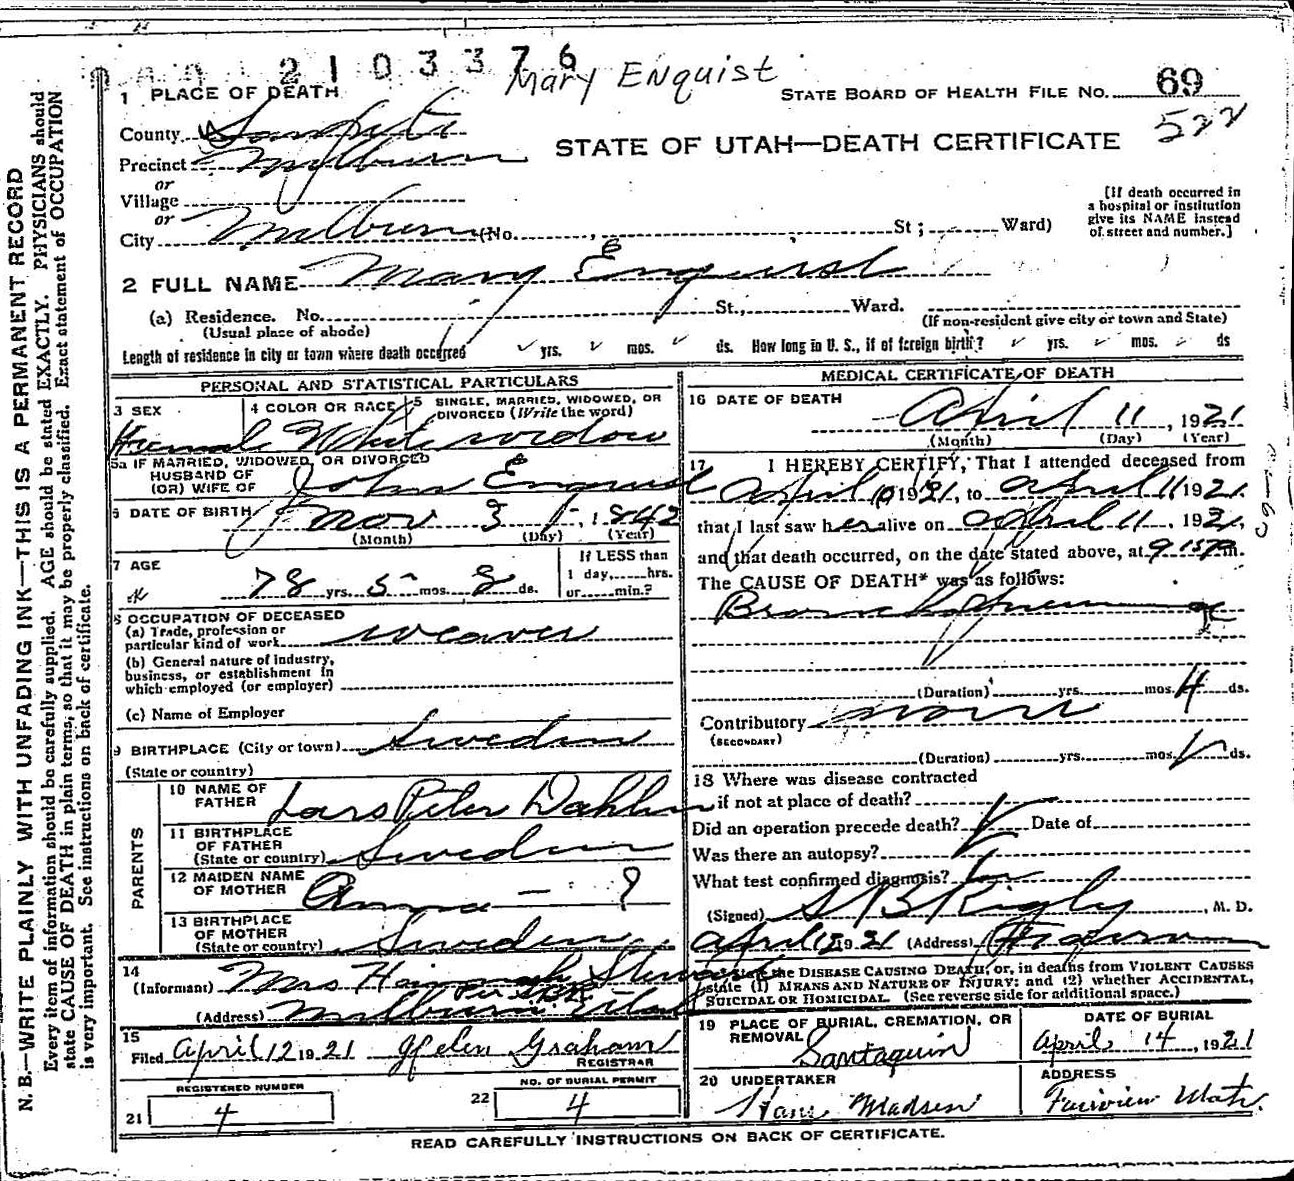 2103376
Mary Enquist
1 PLACE OF DEATH
STATE BOARD OF HEALTH FILE NO. 69
522
County Sanpete
STATE OF UTAH—DEATH CERTIFICATE
Precinct Milburn
or
Village
or
City Milburn (No. , St; Ward)
[If death occurred in
a hospital or institution
give its NAME instead
of street and number.]
2 FULL NAME Mary Enquist
(a) Residence. No. St., Ward.
(Usual place of abode)
(If non-resident give city or town and State)
Length of residence in city or town where death occurred yrs. mos. ds. How long in U. S., if of foreign birth? yrs. mos. ds
PERSONAL AND STATISTICAL PARTICULARS
3 SEX
4 COLOR OR RACE
5 SINGLE, MARRIED, WIDOWED, OR
DIVORCED (Write the word)
Female White widow
5a IF MARRIED, WIDOWED, OR DIVORCED
HUSBAND OF
(OR) WIFE OF John Enquist
6 DATE OF BIRTH Nov 3, 1842
(Month) (Day) (Year)
7 AGE
78 yrs. 5 mos. 8 ds.
If LESS than
1 day, hrs.
or min.?
8 OCCUPATION OF DECEASED
(a) Trade, profession or
particular kind of work weaver
(b) General nature of industry,
business, or establishment in
which employed (or employer)
(c) Name of Employer
9 BIRTHPLACE (City or town) Sweden
(State or country)
PARENTS
10 NAME OF
FATHER Lars Peter Dahlin
11 BIRTHPLACE
OF FATHER
(State or country) Sweden
12 MAIDEN NAME
OF MOTHER Anna — ?
13 BIRTHPLACE
OF MOTHER
(State or country) Sweden
14
(Informant) Mrs Hannah
(Address) Milburn Utah
15
Filed April 12 1921 Helen Graham
REGISTRAR
REGISTERED NUMBER
21 4
NO. OF BURIAL PERMIT
22 4
MEDICAL CERTIFICATE OF DEATH
16 DATE OF DEATH
April 11, 1921
(Month) (Day) (Year)
17 I HEREBY CERTIFY, That I attended deceased from
April 1921, to April 11 1921
that I last saw her alive on April 11, 1921,
and that death occurred, on the date stated above, at m.
The CAUSE OF DEATH* was as follows:
(Duration) yrs. mos. 4 ds.
Contributory none
(SECONDARY)
(Duration) yrs. mos. ds.
18 Where was disease contracted
if not at place of death?
Did an operation precede death? Date of
Was there an autopsy?
What test confirmed diagnosis?
(Signed) S B Rigby, M. D.
April 12 1921 (Address)
state the DISEASE CAUSING DEATH, or, in deaths from VIOLENT CAUSES
state (1) MEANS AND NATURE OF INJURY; and (2) whether ACCIDENTAL,
SUICIDAL OR HOMICIDAL. (See reverse side for additional space.)
19 PLACE OF BURIAL, CREMATION, OR
REMOVAL
Santaquin
DATE OF BURIAL
April 14, 1921
20 UNDERTAKER
Hans Madsen
ADDRESS
Fairview Utah.
READ CAREFULLY INSTRUCTIONS ON BACK OF CERTIFICATE.
N. B.—WRITE PLAINLY WITH UNFADING INK—THIS IS A PERMANENT RECORD
Every item of information should be carefully supplied. AGE should be stated EXACTLY. PHYSICIANS should
state CAUSE OF DEATH in plain terms, so that it may be properly classified. Exact statement of OCCUPATION
is very important. See instructions on back of certificate.